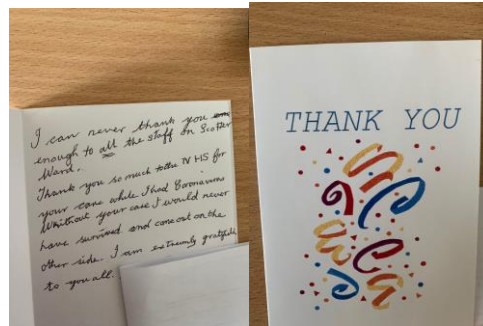 I can never thank you
enough to all the staff on Scotter
Ward.
Thank you so much to the NHS for
your care while I had Coronavirus
Whithout your care I would never
have survived and come out on the
other side. I am extremely grateful
to you all.
THANK YOU